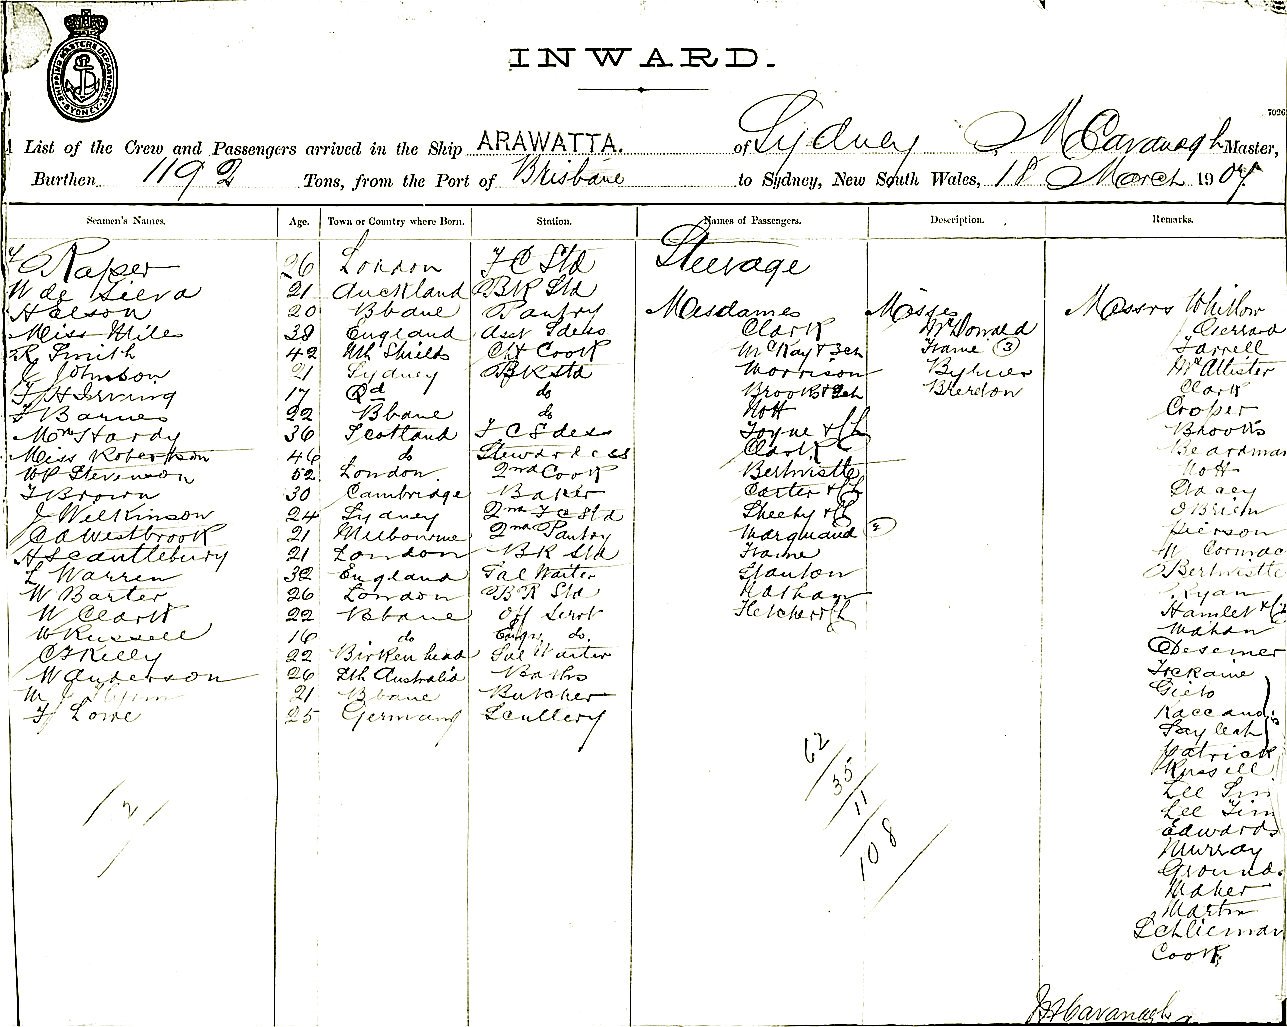 SHIPPING MASTERS DEPARTMENT SYDNEY
INWARD.
7026
List of the Crew and Passengers arrived in the Ship ARAWATTA. of Sydney McCavanagh Master,
Burthen 1192 Tons, from the Port of Brisbane to Sydney, New South Wales, 18 March 1907
Seamen's Names. Age. Town or Country where Born. Station. Names of Passengers. Description. Remarks.
Raper 26 London F C Std Steerage
W de Sieva 21 Auckland BR Std
Helson 20 Bbane Pantry Mesdames Misses Messrs Whitlow
Miss Miles 38 England Asst Sdess Clark McDonald Gerrard
R Smith 42 Nth Shields Cht Cook McKay & 3ch Frame (3) Farrell
J Johnson 21 Sydney BR Std Morrison Bylues McAllister
F H Irving 17 Qd do Brooks & 2ch Breedon Clark
F Barnes 22 Bbane do Nott Croper
Mrs Hardy 36 Scotland F C Sdess Toyne & Ch Brooks
Miss Robertson 46 do Stewardess Clark Beardman
WP Stevenson 52 London 2nd Cook Bertwistle Nott
F Brown 30 Cambridge Baker Carter & Ch Dacey
J Wilkinson 24 Sydney 2nd F C Std Sheehy & Ch OBrien
C A Westbrook 21 Melbourne 2nd Pantry Marquand Pierson
H Scantlebury 21 London BR Std Frame McCormac
L Warren 32 England Sal Waiter Stanton Bertwistle
W Barter 26 London BR Std Natham Ryan
W Clark 22 Bbane Off Servt Fletcher & Ch Hamlet & Ch
W Russell 16 do Engrs do. Mahan
C F Kelly 22 Birkenhead Sal Waiter Desemer
W Anderson 26 Sth Australia Baths Frekaine
M J 21 Bbane Butcher Gieto
F Lowe 25 Germany Scullery Raccand
Sayleah
Patrick
Russell
Lee Sin
Lee Tim
Edwards
Murray
Ground.
Maher
Martin
Schlieman
Cook
62
35
11
108
Cavanagh